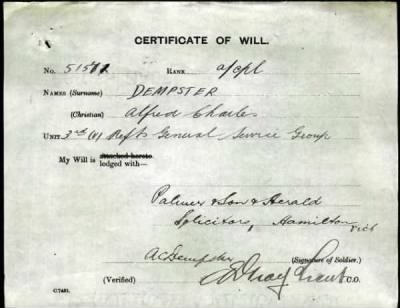 CERTIFICATE OF WILL.
No. 51511 RANK a/cpl
NAMES (Surname) DEMPSTER
(Christian) Alfred Charles
UNIT 3rd (V) Refts General Service Group
My Will is attached hereto.
lodged with—
Palmer & Son & Herald
Solicitors, Hamilton Vict
A C Dempster (Signature of Soldier.)
(Verified) C.O.
C.7481.